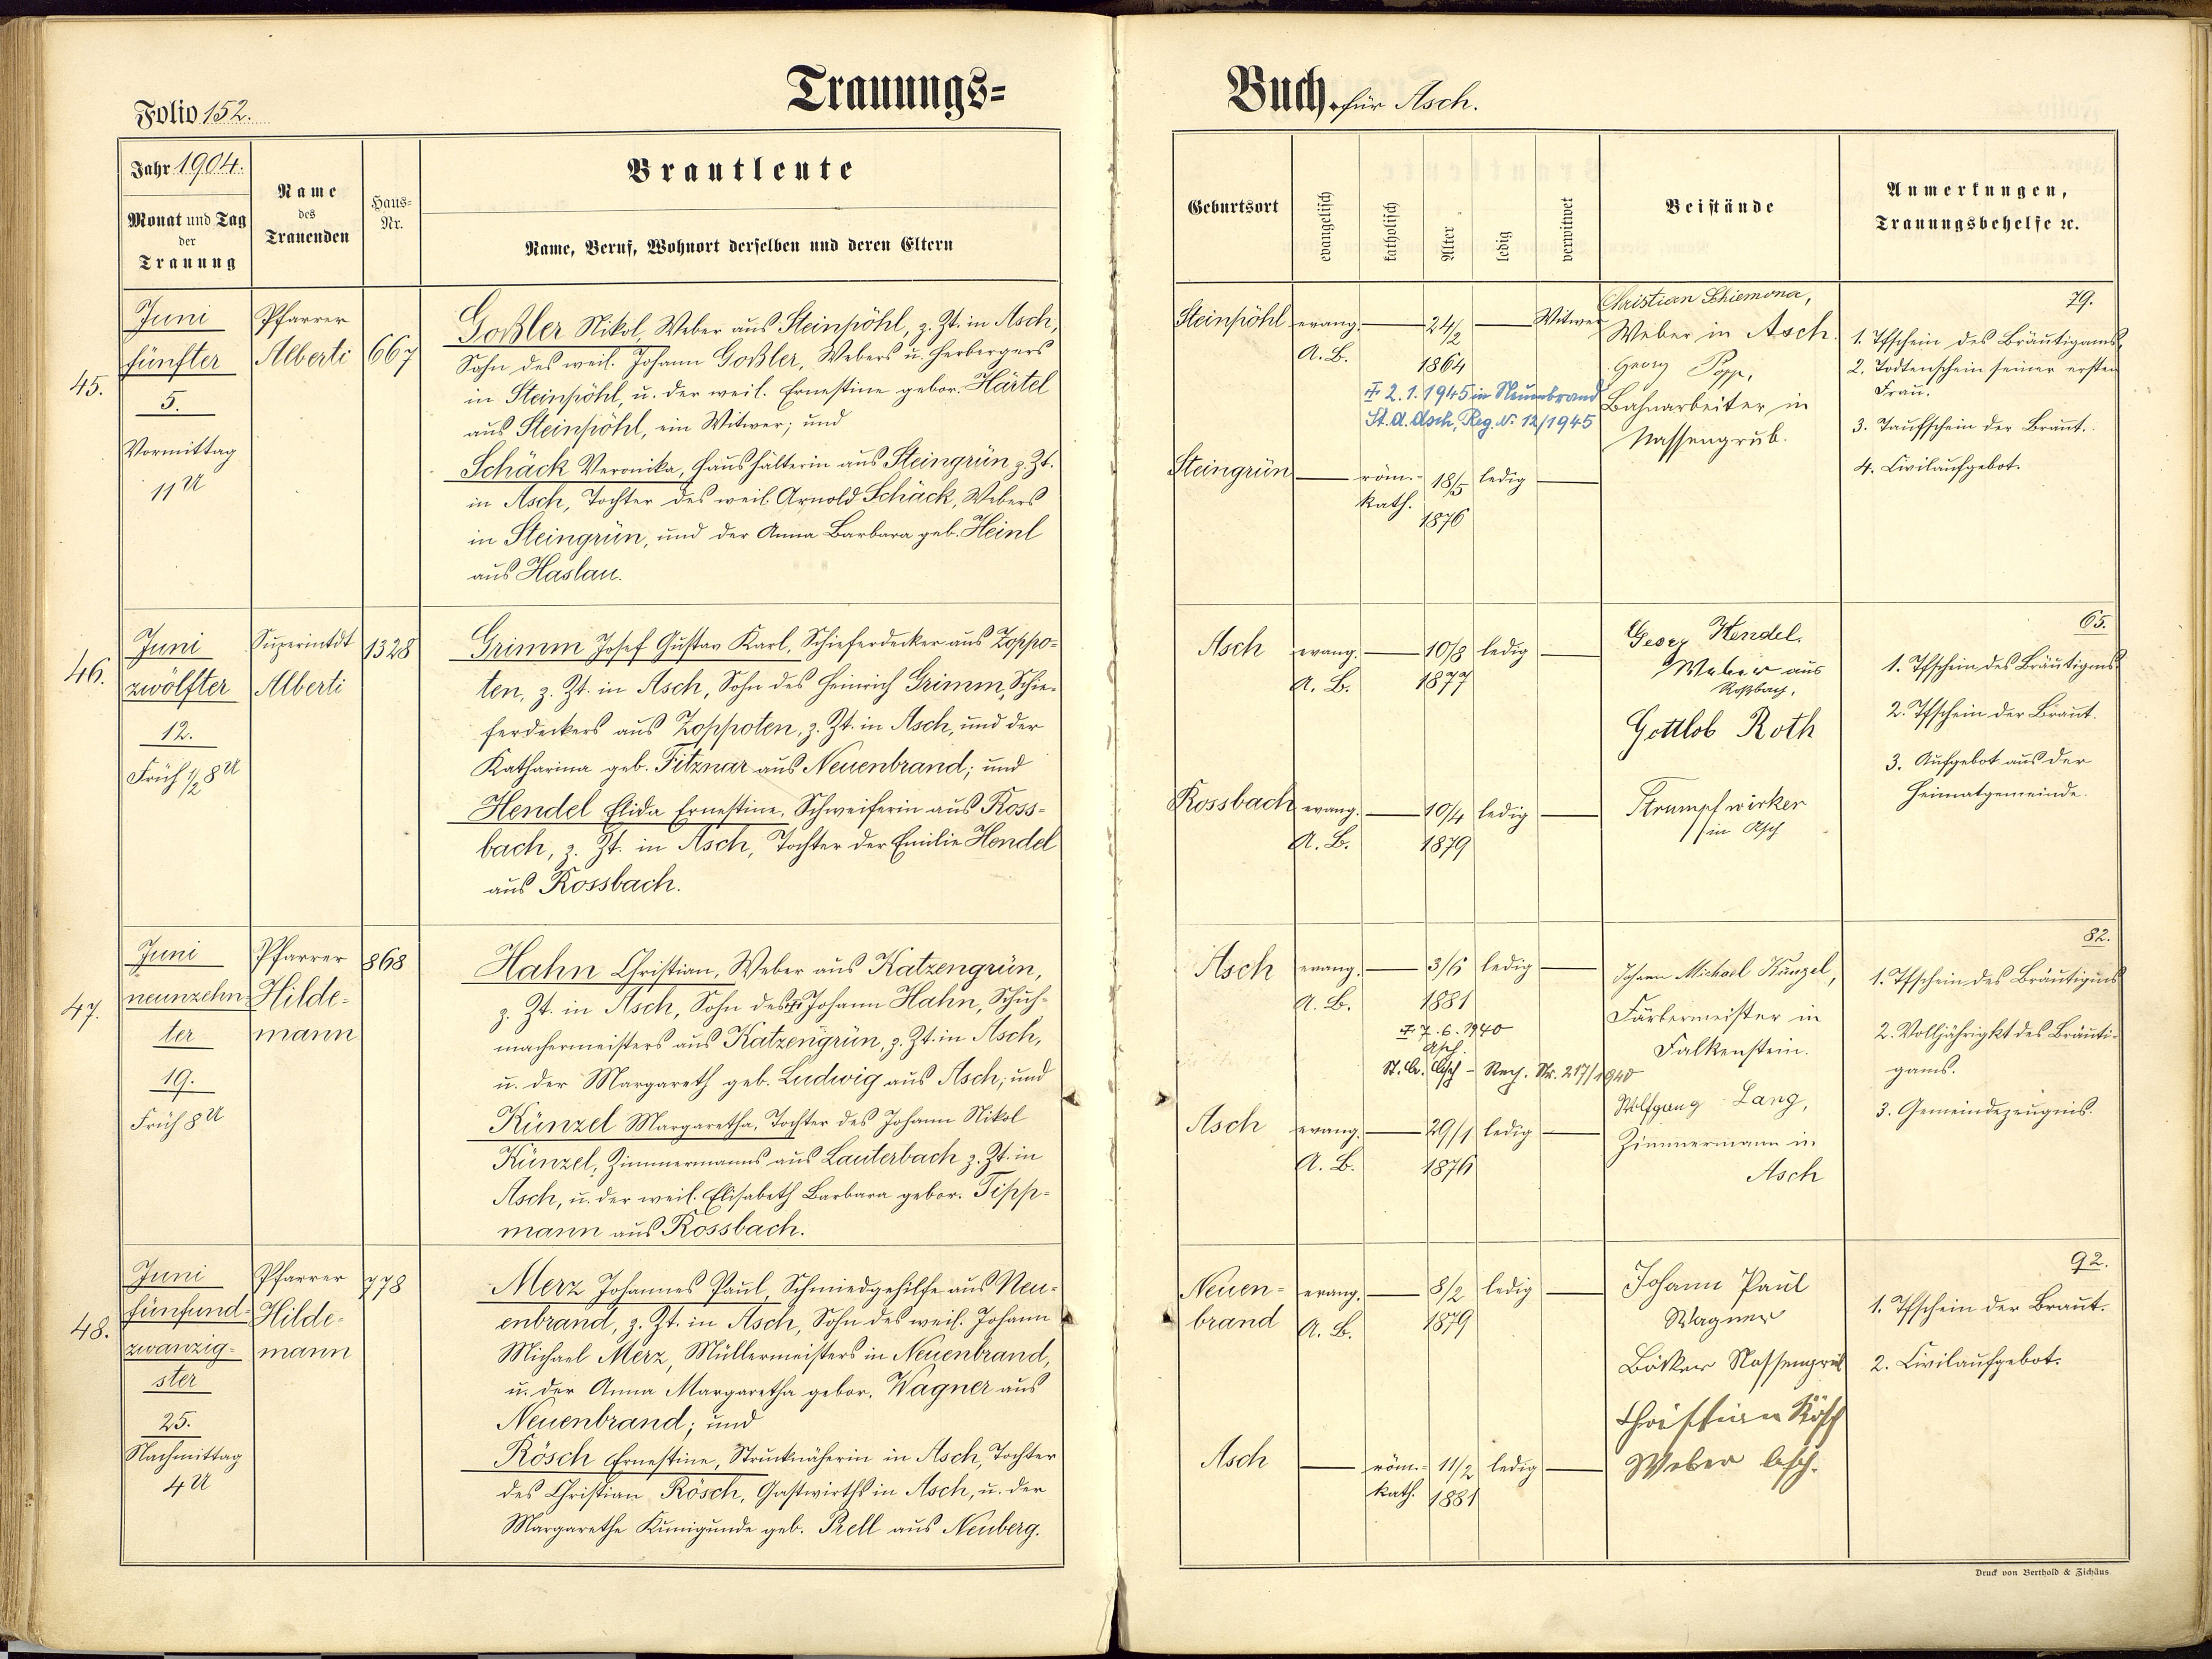 Folio 152.
Trauungs-
Buch. für Asch.
Jahr 1904.
Monat und Tag
der
Trauung
Name
des
Trauenden
Haus-
Nr.
Brautleute
Name, Beruf, Wohnort derselben und deren Eltern
Geburtsort
evangelisch
katholisch
Alter
ledig
verwitwet
Beistände
Anmerkungen,
Trauungsbehelfe ꝛc.
45.
Juni
fünfter
5.
Vormittag
11 U
Pfarrer
Alberti
667
Goßler Nikol, Weber aus Steinpöhl, z. Zt. in Asch,
Sohn des weil. Johann Goßler, Webers u. Herbergers
in Steinpöhl, u. der weil. Ernestine gebor. Härtel
aus Steinpöhl, ein Witwer; und
Schäck Veronika, Haushälterin aus Steingrün z. Zt.
in Asch, Tochter des weil. Arnold Schäck, Webers
in Steingrün, und der Anna Barbara geb. Heinl
aus Haslau.
Steinpöhl
evang.
A. B.
24/2
1864
Witwer
✝ 2.1.1945 in Neuenbrand
St. A. Asch, Reg. N: 12/1945
Steingrün
röm.-
kath.
18/5
1876
ledig
Christian Schiemona,
Weber in Asch.
Georg Popp,
Bahnarbeiter in
Nassengrub.
79.
1. Tfschein des Bräutigams,
2. Todtenschein seiner ersten
Frau.
3. Taufschein der Braut.
4. Civilaufgebot.
46.
Juni
zwölfter
12.
Früh 1/2 8 U
Superintdt
Alberti
1328
Grimm Josef Gustav Karl, Schieferdecker aus Zoppo-
ten, z. Zt. in Asch, Sohn des Heinrich Grimm, Schie-
ferdeckers aus Zoppoten, z. Zt. in Asch, und der
Katharina geb. Fitznar aus Neuenbrand; und
Hendel Elida Ernestine, Schweiferin aus Ross-
bach, z. Zt. in Asch, Tochter der Emilie Hendel
aus Rossbach.
Asch
evang.
A. B.
10/8
1877
ledig
Rossbach
evang.
A. B.
10/4
1879
ledig
Georg Hendel.
Weber aus
Roßbach,
Gottlob Roth
Strumpfwirker
in Asch
65.
1. Tfschein des Bräutigams
2. Tfschein der Braut.
3. Aufgebot aus der
Heimatgemeinde.
47.
Juni
neunzehn-
ter
19.
Früh 8 U
Pfarrer
Hilde-
mann
868
Hahn Christian, Weber aus Katzengrün,
z. Zt. in Asch, Sohn des ✝ Johann Hahn, Schuh-
machermeisters aus Katzengrün, z. Zt. in Asch,
u. der Margareth geb. Ludwig aus Asch; und
Künzel Margaretha, Tochter des Johann Nikol
Künzel, Zimmermanns aus Lauterbach z. Zt. in
Asch, u. der weil. Elisabeth Barbara gebor. Tipp-
mann aus Rossbach.
Asch
evang.
A. B.
3/6
1881
ledig
✝ 7.6.1940
Asch.
St. A. Asch - Reg. Nr. 217/1940
Asch
evang.
A. B.
29/1
1876
ledig
Johann Michael Künzel,
Färbermeister in
Falkenstein.
Wolfgang Lang,
Zimmermann in
Asch
82.
1. Tfschein des Bräutigams
2. Volljährigkt des Bräuti-
gams.
3. Gemeindezeugnis.
48.
Juni
fünfund-
zwanzig-
ster
25.
Nachmittag
4 U
Pfarrer
Hilde-
mann
778
Merz Johannes Paul, Schmiedgehilfe aus Neu-
enbrand, z. Zt. in Asch, Sohn des weil. Johann
Michael Merz, Müllermeisters in Neuenbrand,
u. der Anna Margaretha gebor. Wagner aus
Neuenbrand; und
Rösch Ernestine, Strucknäherin in Asch, Tochter
des Christian Rösch, Gastwirths in Asch, u. der
Margarethe Kunigunde geb. Prell aus Neuberg.
Neuen-
brand
evang.
A. B.
8/2
1879
ledig
Asch
röm.-
kath.
11/2
1881
ledig
Johann Paul
Wagner
Bäcker Nassengrub
Christian Rösch
Weber Asch.
92.
1. Tfschein der Braut.
2. Civilaufgebot.
Druck von Berthold & Zichäus